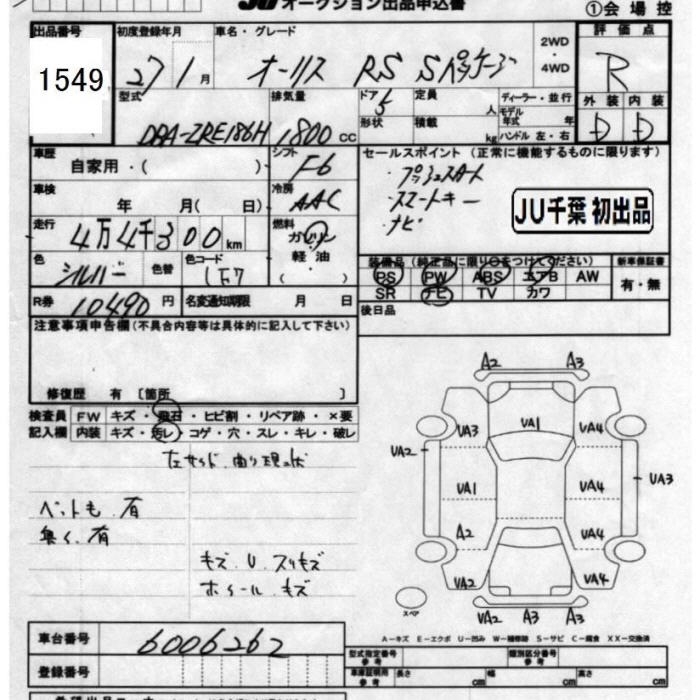 JU オークション出品申込書 ①会場控
出品番号 初度登録年月 車名・グレード 2WD・4WD 評価点
1549 27 1月 オーリス RS Sパッケージ R
型式 排気量 ドア 5 定員 人 ディーラー・並行 外装 内装
DBA-ZRE186H 1800cc 形状 積載 kg モデル年式 年 ハンドル 左・右 D D
車歴 自家用・( ) シフト F6 セールスポイント(正常に機能するものに限ります)
・プッシュスタート
車検 年 月( 日) 冷房 AAC ・スマートキー
・ナビ
JU千葉 初出品
走行 4万4千300km 燃料 ガソリン 軽・油
色 シルバー 色替 色コード 1F7 装備品(純正品に限り○をつけてください) 新車保証書
PS PW ABS エアB AW 有・無
SR ナビ TV カワ
R券 10490円 名変通知期限 月 日 後日品
注意事項申告欄(不具合内容等は具体的に記入して下さい)
修復歴 有 〔箇所 〕
検査員 FW キズ・飛石・ヒビ割・リペア跡・×要
記入欄 内装 キズ・汚レ・コゲ・穴・スレ・キレ・破レ
左サイド 曲り現状
ペットも 有
臭く 有
キズ U スリキズ
ホイール キズ
A2 A3
VA3 VA1 VA4
VA2 VA1 VA4 VA3
A2 VA4
VA2 VA4
VA2 A3 A3
スペア
A-キズ E-エクボ U-凹み W-補修跡 S-サビ C-腐食 XX-交換済
車台番号 6006262
型式指定番号 参考 類別区分番号 参考
登録番号 車庫証明用 参考 長さ cm 幅 cm 高さ cm